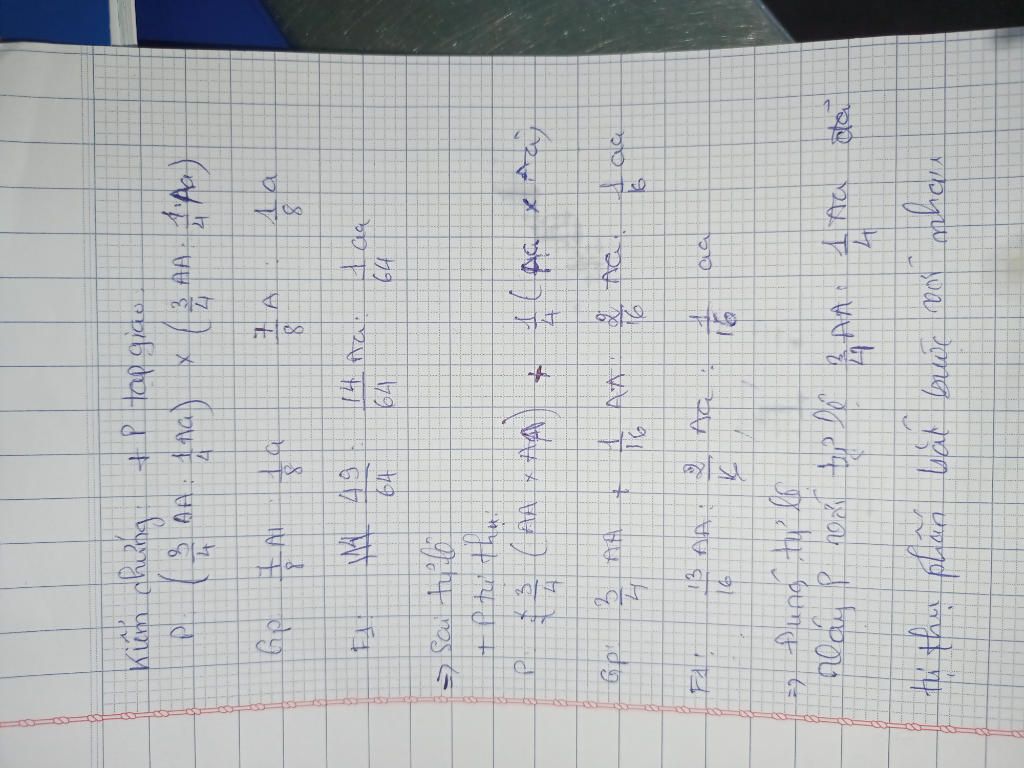 Kiểm chứng: + P tạp giao.
P: (3/4 AA : 1/4 Aa) x (3/4 AA : 1/4 Aa)
Gp: 7/8 A : 1/8 a 7/8 A : 1/8 a
F1: 49/64 : 14/64 Aa : 1/64 aa
=> Sai tỷ lệ
+ P tự thụ:
P: 3/4 (AA x AA) + 1/4 (Aa x Aa)
Gp: 3/4 AA + 1/16 AA : 2/16 Aa : 1/6 aa
F1: 13/16 AA : 2/16 Aa : 1/16 aa
=> Đúng tỷ lệ
Vậy P với tỷ lệ 3/4 AA : 1/4 Aa đã
tự thụ phấn bắt buộc với nhau